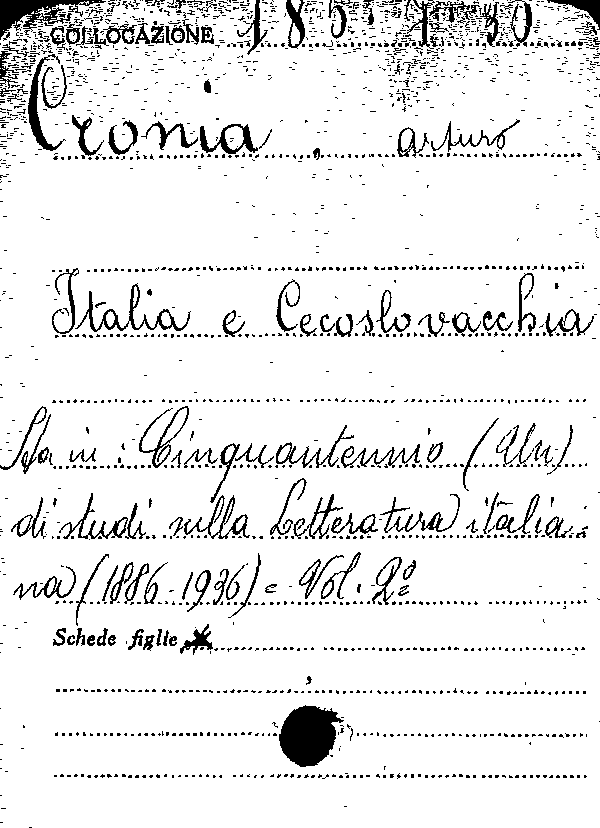 COLLOCAZIONE 185.
Cronia, Arturo
Italia e Cecoslovacchia
Sta in: Cinquantennio (Un)
di studi sulla Letteratura italia-
na (1886-1936) = Vol. 2º
Schede figlie x